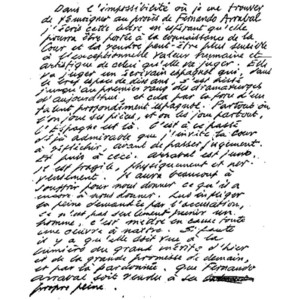 Dans l'impossibilité où je me trouve
de témoigner au procès de Fernando Arrabal
j'écris cette lettre en espérant qu'elle
pourra être portée à la connaissance de la
Cour et la rendre peut-être plus sensible
à l'exceptionnelle valeur humaine et
artistique de celui qu'elle va juger. Elle
va juger un écrivain espagnol qui, dans
le trop espace de dix ans, s'est hissé
jusqu'au premier rang des dramaturges
d'aujourd'hui, et cela par la force d'un
talent profondément espagnol. Partout où
l'on joue ses pièces, et on les joue partout,
l'Espagne est là. C'est à ce passé
déjà admirable que j'invite la Cour
à réfléchir, avant de passer jugement.
Et puis à ceci. Arrabal est jeune.
Il est fragile, physiquement et ner-
veusement. Il aura beaucoup à
souffrir pour nous donner ce qu'il a
encore à nous donner. Lui infliger
la peine demandée par l'accusation,
ce n'est pas seulement punir un
homme, c'est mettre en cause toute
une oeuvre à naître. Si faute
il y a qu'elle soit vue à la
lumière du grand mérite d'hier
et de la grande promesse de demain,
et par là pardonnée. Que Fernando
Arrabal soit rendu à sa
propre peine.